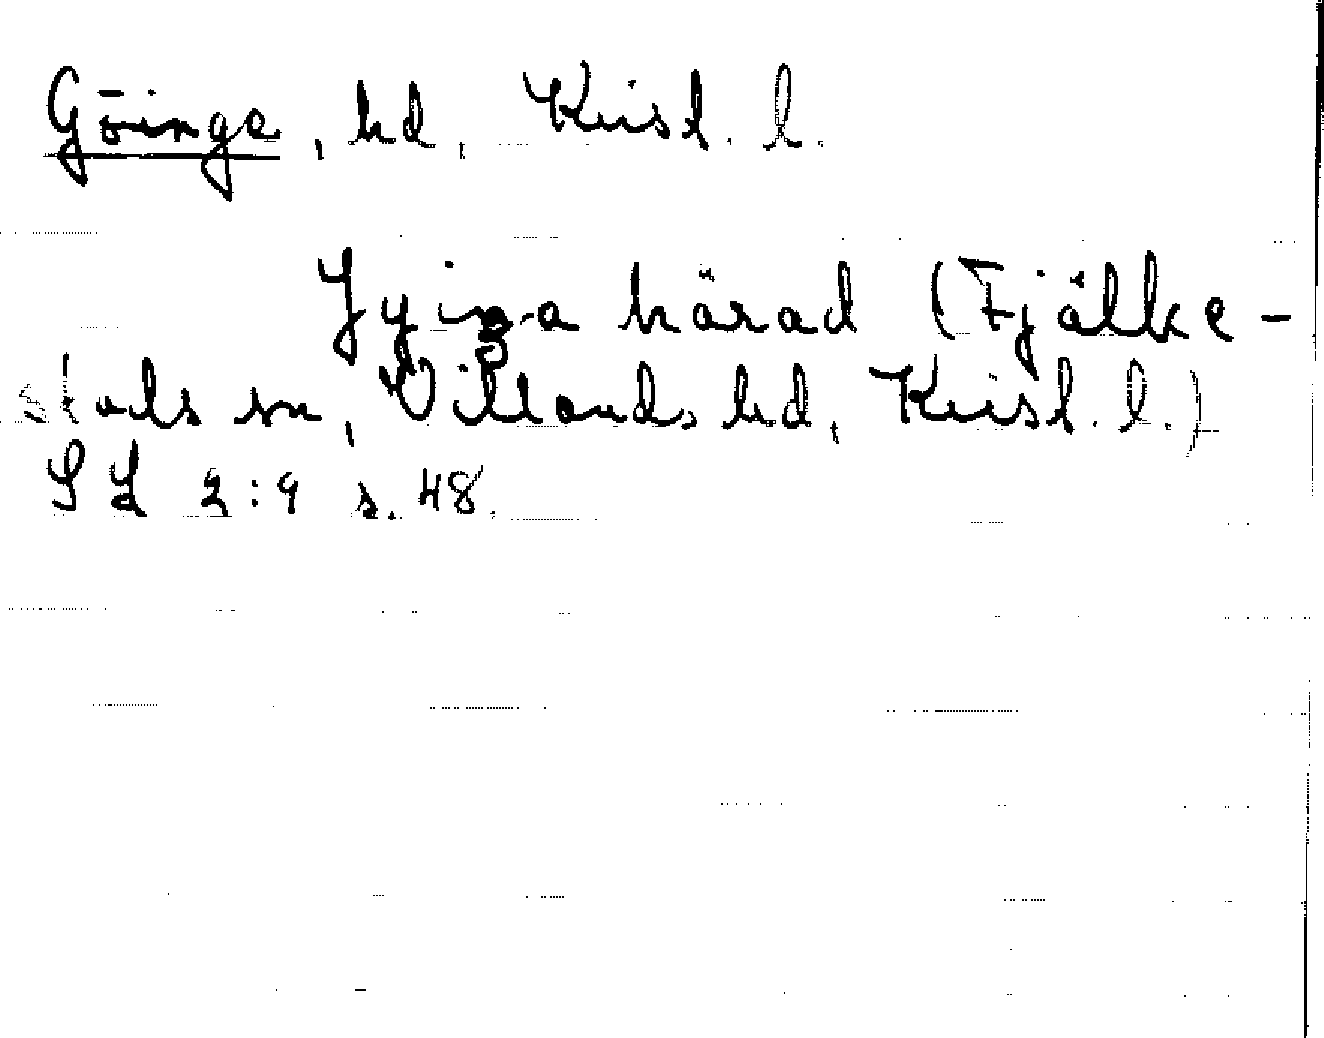 Göinge, hd, Krist. l.
Jyinga härad (Fjälke-
stads sn, Villands hd, Krist. l.)
SL 2:9 s. 48.